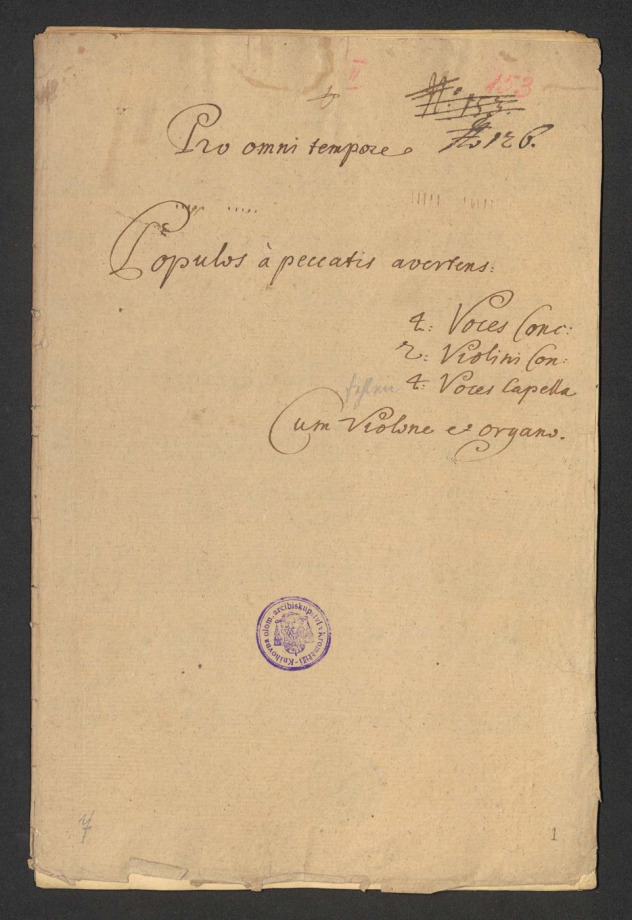 II
153
N: 153.
No 126.
Pro omni tempore
Populos à peccatis avertens:
4: Voces Conc:
2: Violini Con:
fehlen 4: Voces Capella
Cum Violone et organo.
Knihovna olom. arcibiskupství v Kroměříži
1